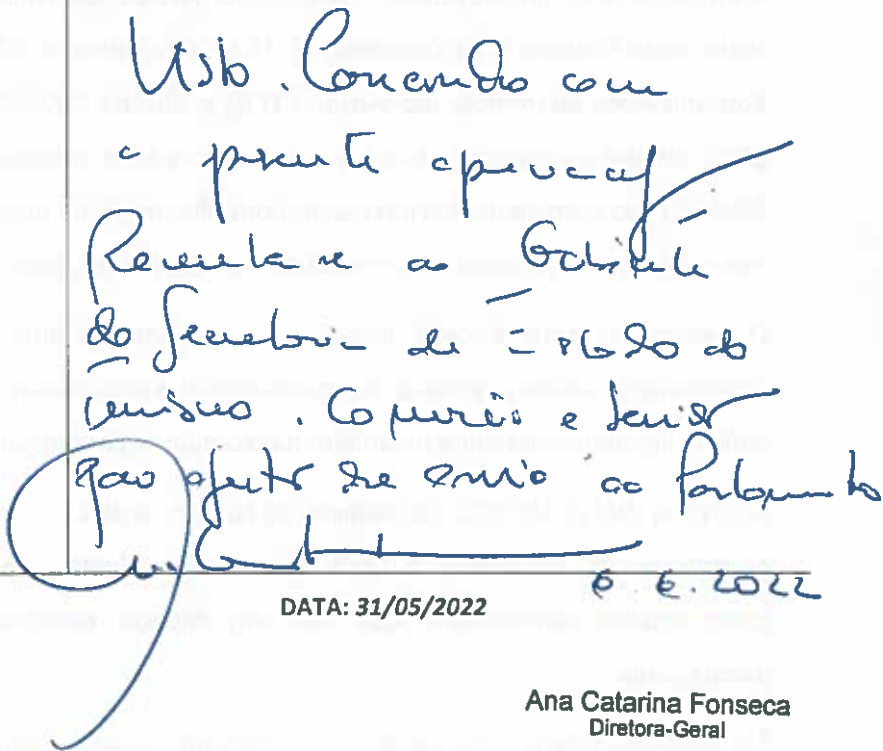 Visto. Concordo com
a presente apreciação
Remeta-se ao Gabinete
do Secretário de Estado do
Turismo, Comércio e Serviços
para efeitos de envio ao Parlamento
6.6.2022
DATA: 31/05/2022
Ana Catarina Fonseca
Diretora-Geral